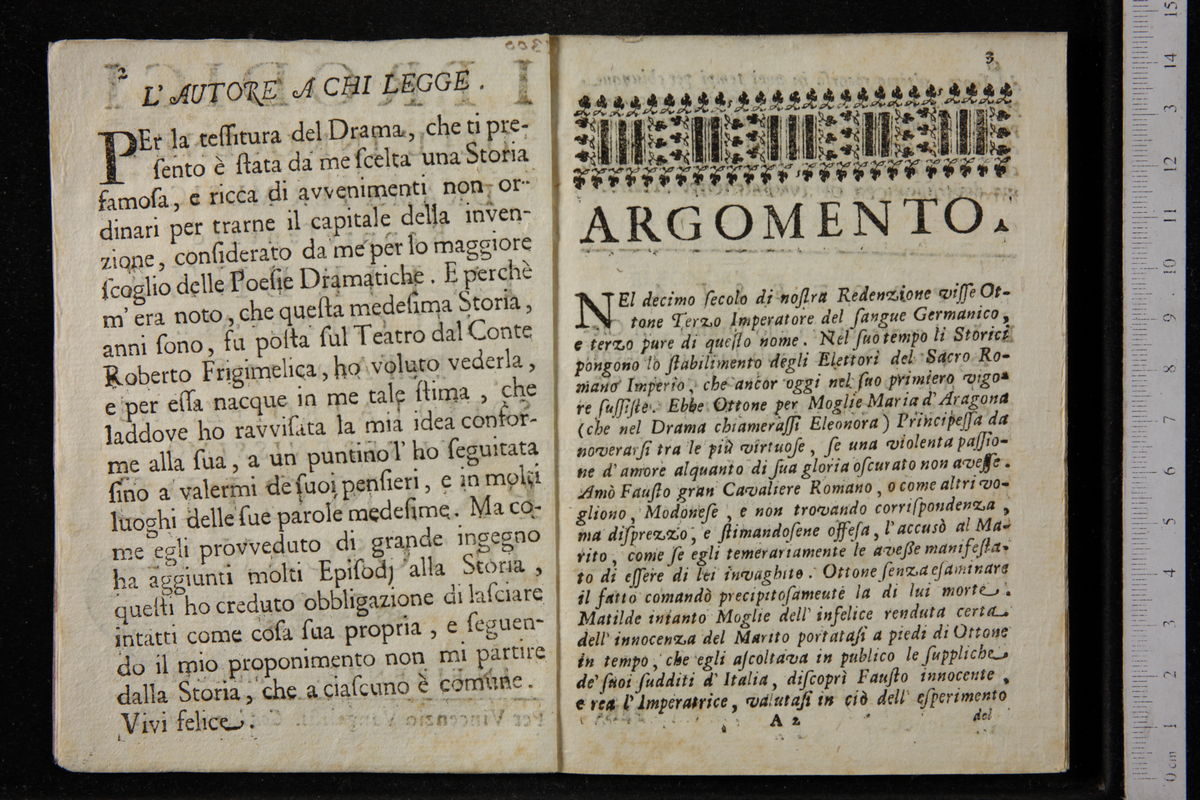 2
L' AUTORE A CHI LEGGE .
PEr la teſſitura del Drama, che ti pre-
ſento è ſtata da me ſcelta una Storia
famoſa, e ricca di avvenimenti non or-
dinari per trarne il capitale della inven-
zione, conſiderato da me per lo maggiore
ſcoglio delle Poeſie Dramatiche. E perchè
m' era noto, che queſta medeſima Storia,
anni ſono, fu poſta ſul Teatro dal Conte
Roberto Frigimelica, ho voluto vederla,
e per eſſa nacque in me tale ſtima, che
laddove ho ravviſata la mia idea confor-
me alla ſua, a un puntino l' ho ſeguitata
ſino a valermi de ſuoi penſieri, e in molti
luoghi delle ſue parole medeſime. Ma co-
me egli provveduto di grande ingegno
ha aggiunti molti Epiſodj alla Storia,
queſti ho creduto obbligazione di laſciare
intatti come coſa ſua propria, e ſeguen-
do il mio proponimento non mi partire
dalla Storia, che a ciaſcuno è comune.
Vivi felice.
3
ARGOMENTO.
NEl decimo ſecolo di noſtra Redenzione viſſe Ot-
tone Terzo Imperatore del ſangue Germanico,
e terzo pure di queſto nome. Nel ſuo tempo li Storici
pongono lo ſtabilimento degli Elettori del Sacro Ro-
mano Imperio, che ancor oggi nel ſuo primiero vigo-
re ſuſſiſte. Ebbe Ottone per Moglie Maria d' Aragona
(che nel Drama chiameraſſi Eleonora) Principeſſa da
noverarſi tra le più virtuoſe, ſe una violenta paſſio-
ne d' amore alquanto di ſua gloria oſcurato non aveſſe.
Amò Fauſto gran Cavaliere Romano, o come altri vo-
gliono, Modoneſe, e non trovando corriſpondenza,
ma diſprezzo, e ſtimandoſene offeſa, l' accusò al Ma-
rito, come ſe egli temerariamente le aveße manifeſta-
to di eſſere di lei invaghito. Ottone ſenza eſaminare
il fatto comandò precipitoſameute la di lui morte.
Matilde intanto Moglie dell' infelice renduta certa
dell' innocenza del Marito portataſi a piedi di Ottone
in tempo, che egli aſcoltava in publico le ſuppliche
de' ſuoi ſudditi d' Italia, diſcoprì Fauſto innocente,
e rea l' Imperatrice, valutaſi in ciò dell' eſperimento
A 2
del